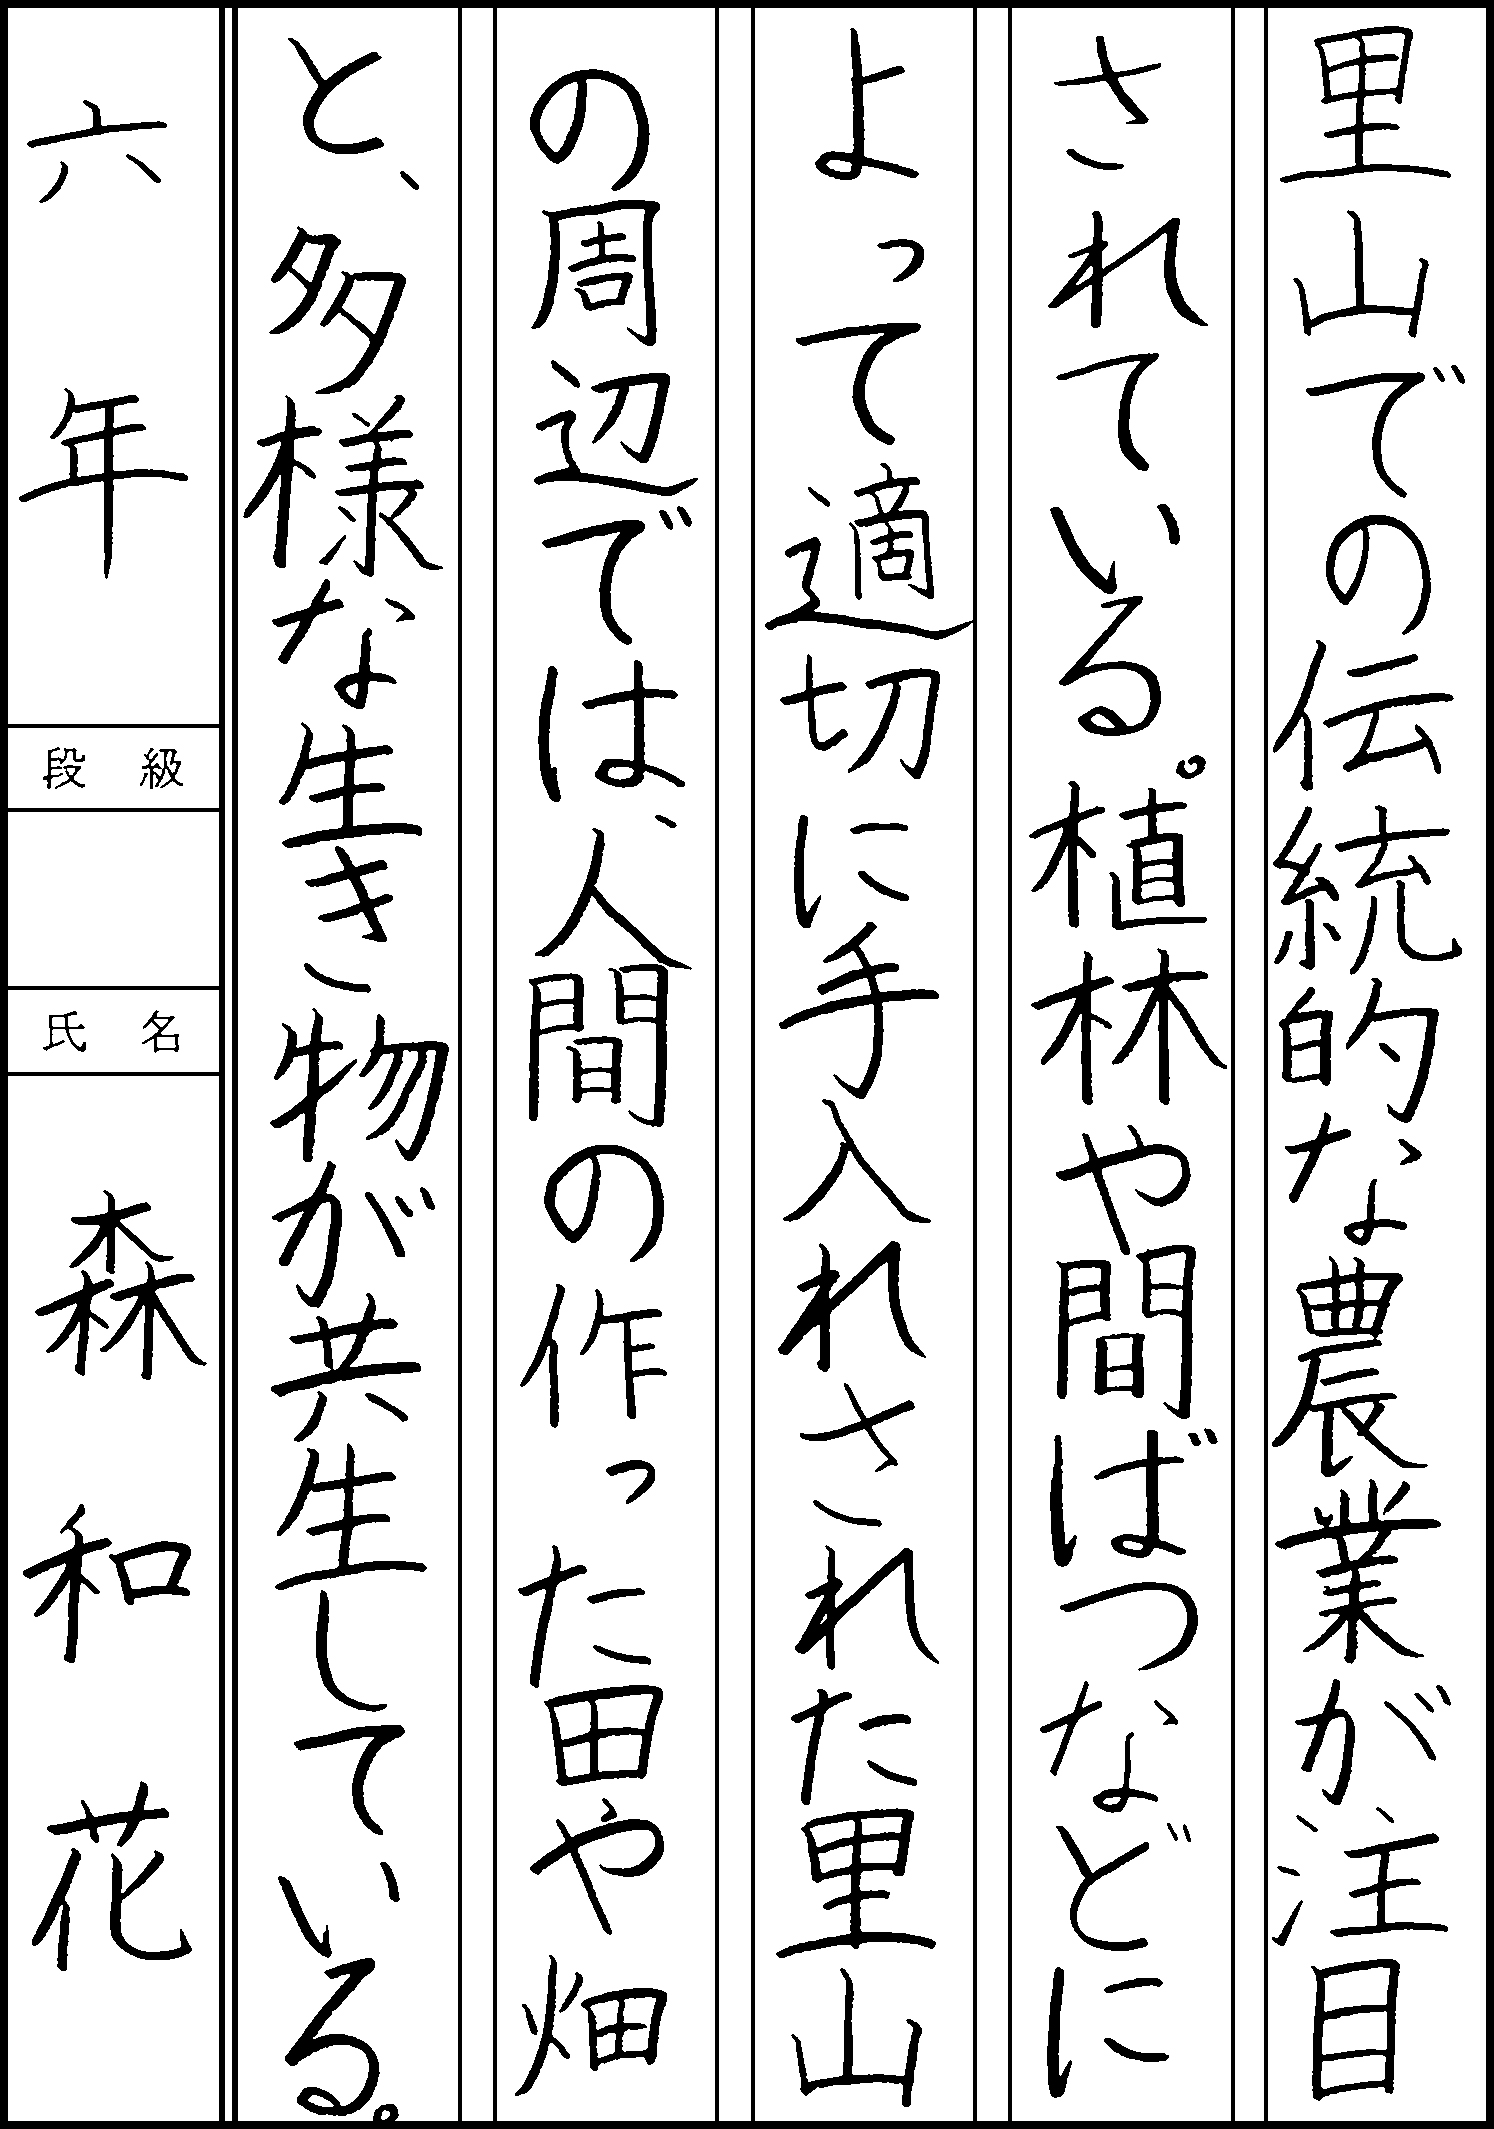 里山での伝統的な農業が注目
されている。植林や間ばつなどに
よって適切に手入れされた里山
の周辺では、人間の作った田や畑
と、多様な生き物が共生している。
六年
段級
氏名
森和花